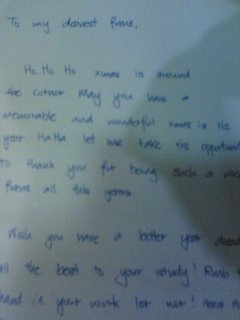 To my dearest
Ho. Ho Ho xmas is around
the corner May you have a
memorable and wonderful xmas in this
year. Ha Ha let me take this opportunit
to thank you for being such a nice
all this years.
Wish you have a better year
all the best to your study!
hand in your work